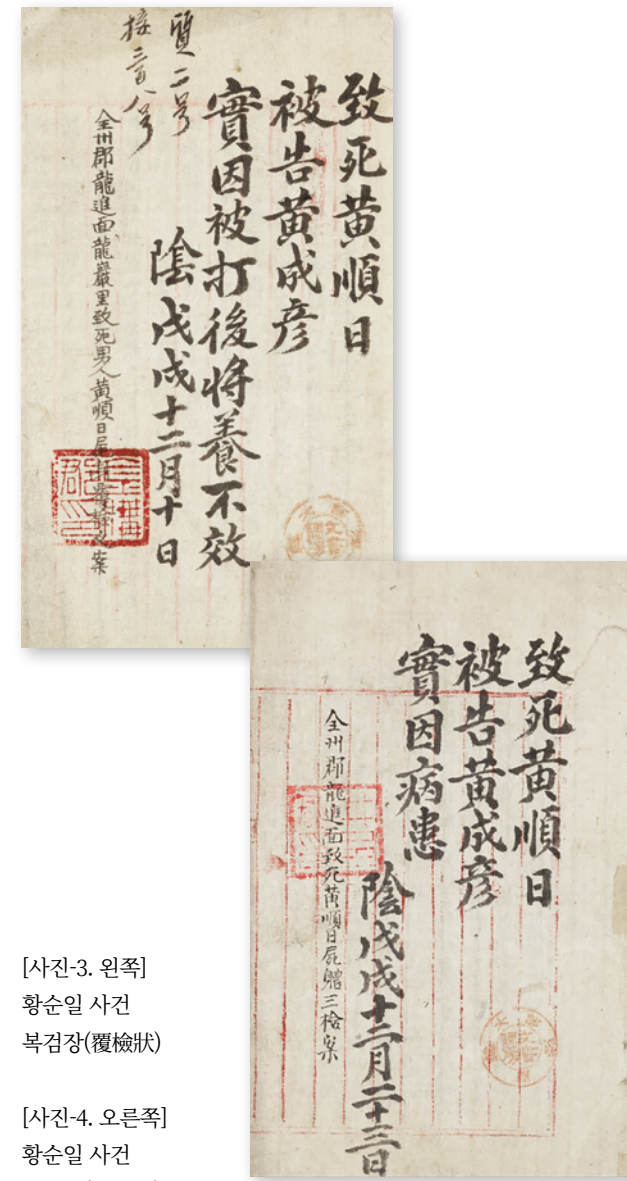 致死黃順日
被告黃成彦
實因被打後將養不效
陰戊戌十二月十日
質二号
接三百八号
全州郡龍進面龍巖里致死男人黃順日屍 案
致死黃順日
被告黃成彦
實因病患
陰戊戌十二月二十三日
全州郡龍進面致死黃順日屍體三檢案
[사진-3. 왼쪽]
황순일 사건
복검장(覆檢狀)
[사진-4. 오른쪽]
황순일 사건